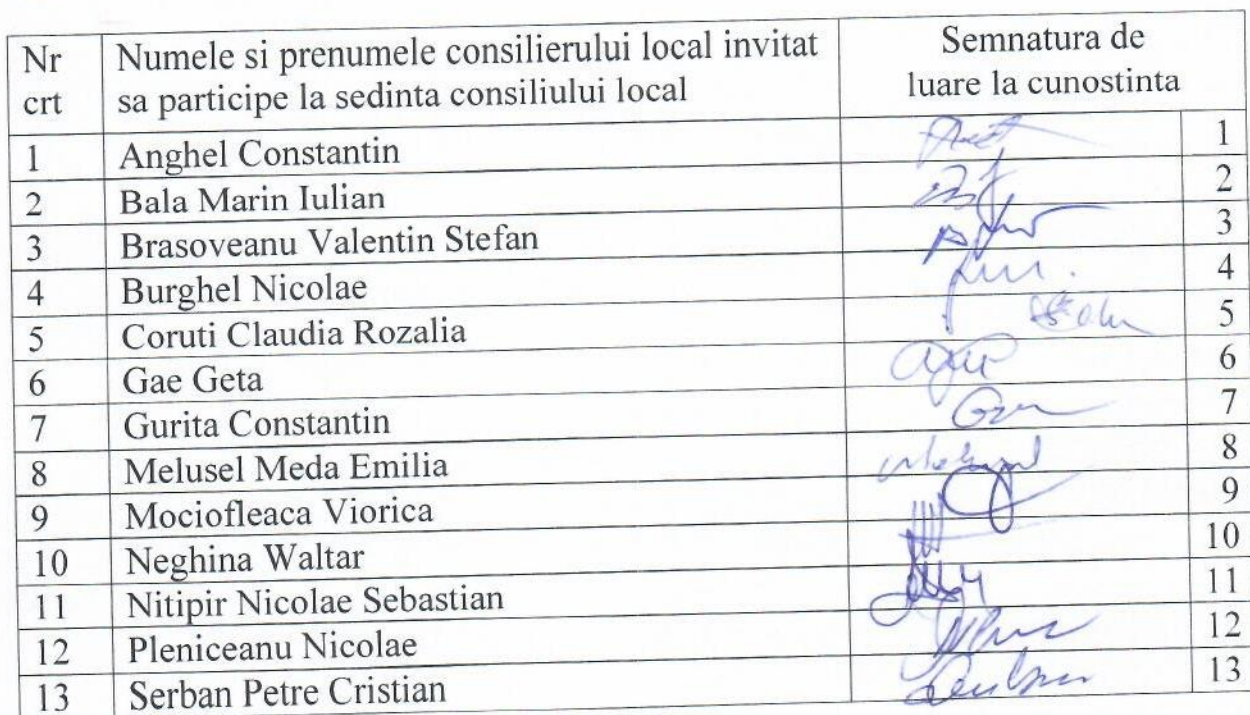 Nr crt Numele si prenumele consilierului local invitat sa participe la sedinta consiliului local Semnatura de luare la cunostinta
1 Anghel Constantin 1
2 Bala Marin Iulian 2
3 Brasoveanu Valentin Stefan 3
4 Burghel Nicolae 4
5 Coruti Claudia Rozalia 5
6 Gae Geta 6
7 Gurita Constantin 7
8 Melusel Meda Emilia 8
9 Mociofleaca Viorica 9
10 Neghina Waltar 10
11 Nitipir Nicolae Sebastian 11
12 Pleniceanu Nicolae 12
13 Serban Petre Cristian 13